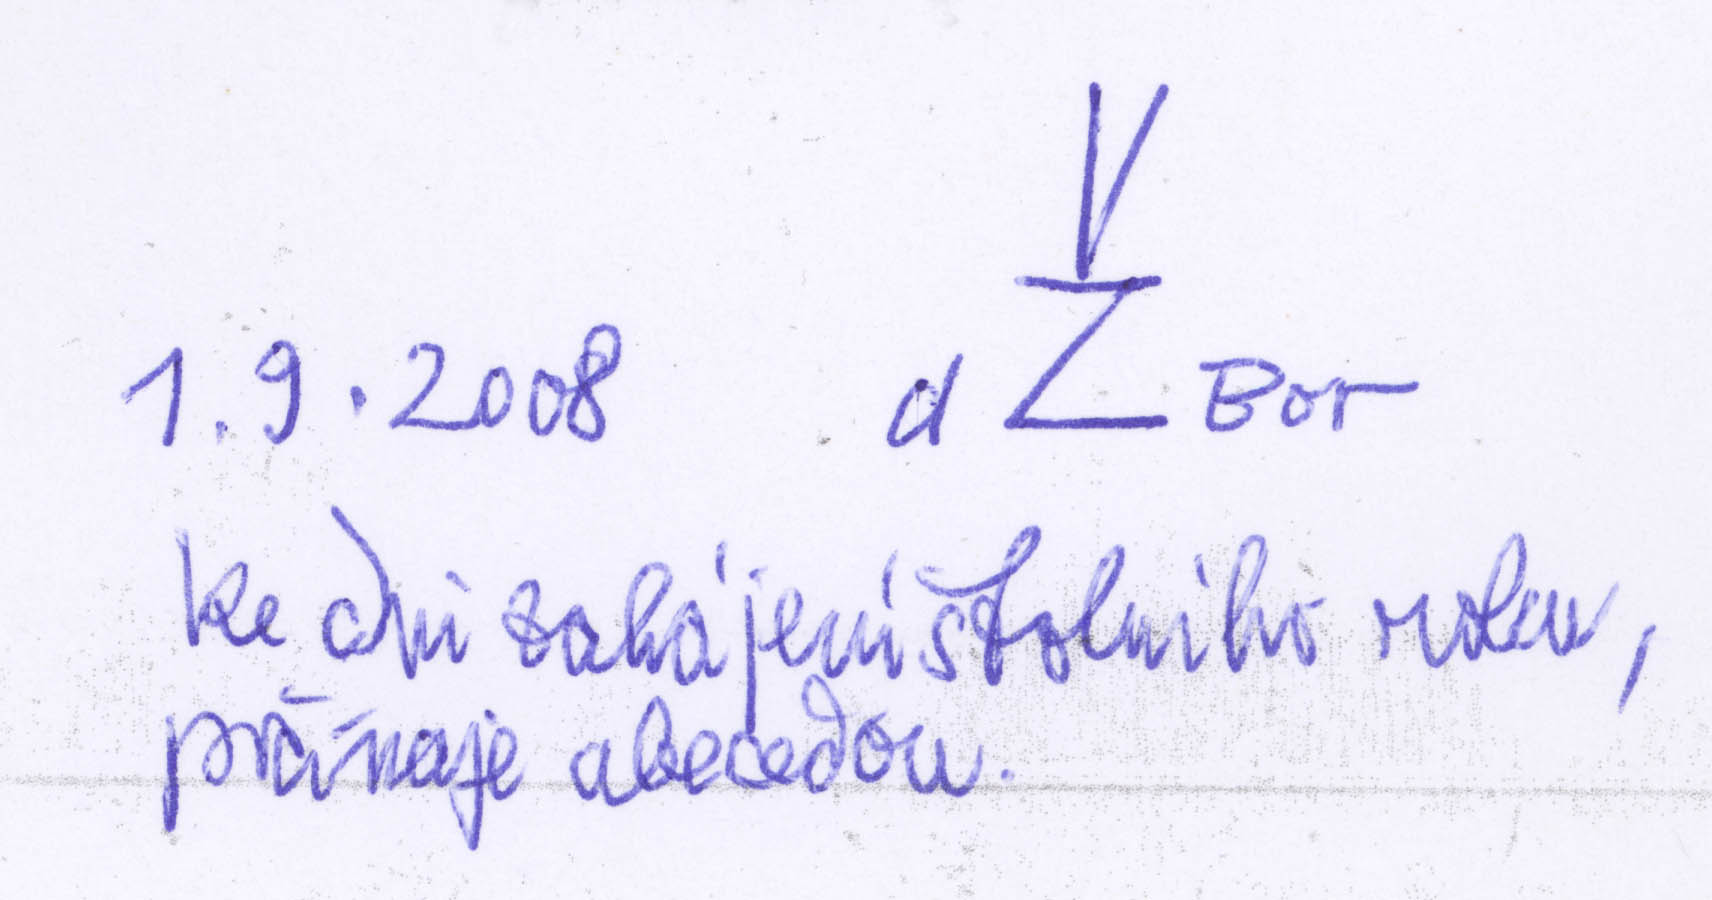 1.9.2008 d Ž Bor
ke dni zahájení školního roku,
počínaje abecedou.